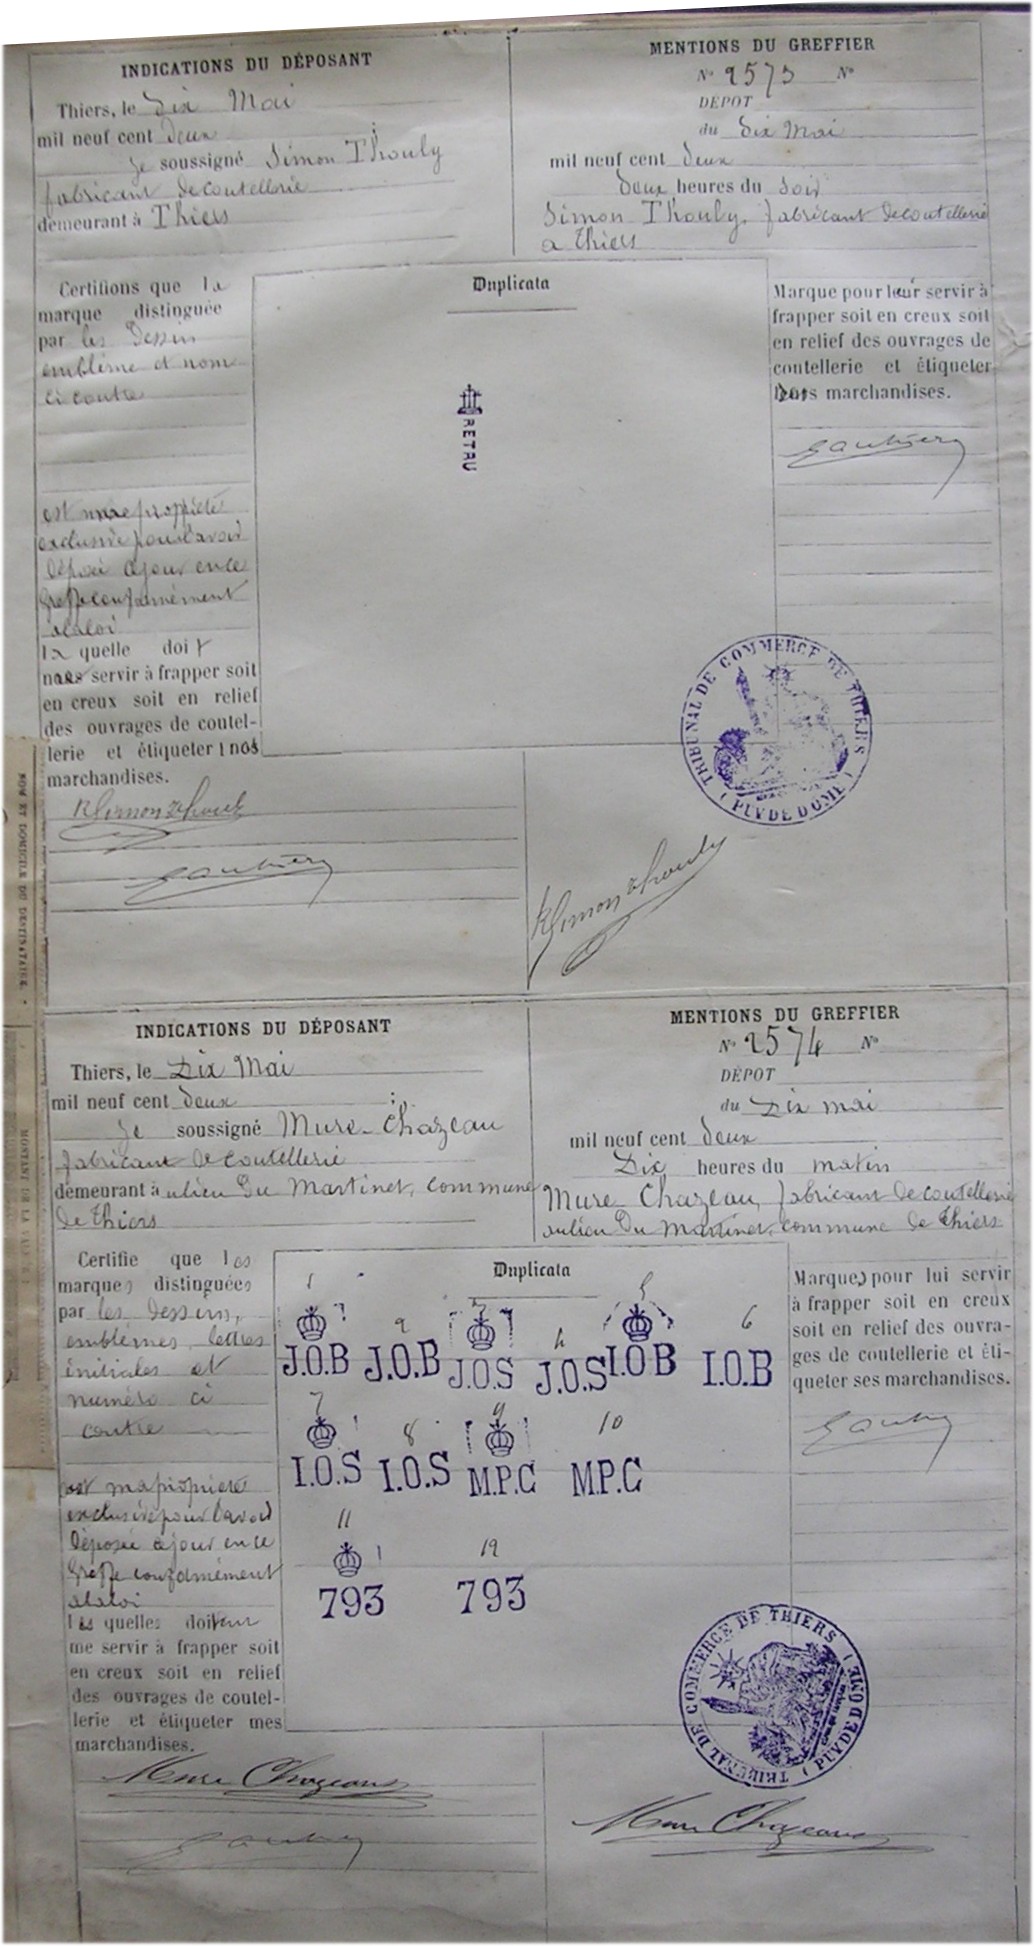 INDICATIONS DU DÉPOSANT
Thiers, le Dix Mai
mil neuf cent deux
Je soussigné Simon Thouly
fabricant de coutellerie
demeurant à Thiers
MENTIONS DU GREFFIER
N° 2573 N°
DÉPOT
du Dix Mai
mil neuf cent deux
Deux heures du soir
Simon Thouly, fabricant de coutellerie
a Thiers
Certifions que la
marque distinguée
par les Dessin
emblème et nom
ci contre
est propriété
exclusive pour l'avoir
déposée ce jour en ce
Greffe conformément
a la loi
la quelle doit
servir à frapper soit
en creux soit en relief
des ouvrages de coutel-
lerie et étiqueter nos
marchandises.
R Simon Thouly
Gauthier
Duplicata
RETRU
Marque pour leur servir à
frapper soit en creux soit
en relief des ouvrages de
coutellerie et étiqueter
leurs marchandises.
Gauthier
TRIBUNAL DE COMMERCE DE THIERS
(PUY DE DOME)
R Simon Thouly
NOM ET DOMICILE DU DESTINATAIRE.
MONTANT DE LA VALEUR
INDICATIONS DU DÉPOSANT
Thiers, le Dix Mai
mil neuf cent deux
Je soussigné Mure-Chazeau
fabricant de coutellerie
demeurant à au lieu Du Martinet, commune
de Thiers
MENTIONS DU GREFFIER
N° 2574 N°
DÉPOT
du Dix mai
mil neuf cent deux
Dix heures du matin
Mure-Chazeau, fabricant de coutellerie
au lieu Du Martinet, commune de Thiers
Certifie que les
marques distinguées
par les dessins,
emblèmes, lettres
initiales et
numéro ci
contre
est ma propriété
exclusive pour l'avoir
déposée ce jour en ce
Greffe conformément
a la loi
les quelles doivent
me servir à frapper soit
en creux soit en relief
des ouvrages de coutel-
lerie et étiqueter mes
marchandises.
Mure Chazeau
Gauthier
Duplicata
1 2 3 4 5 6
J.O.B J.O.B J.O.S J.O.S I.O.B I.O.B
7 8 9 10
I.O.S I.O.S M.P.C M.P.C
11 12
793 793
Marques pour lui servir
à frapper soit en creux
soit en relief des ouvra-
ges de coutellerie et éti-
queter ses marchandises.
Gauthier
TRIBUNAL DE COMMERCE DE THIERS
(PUY DE DOME)
Mure Chazeau